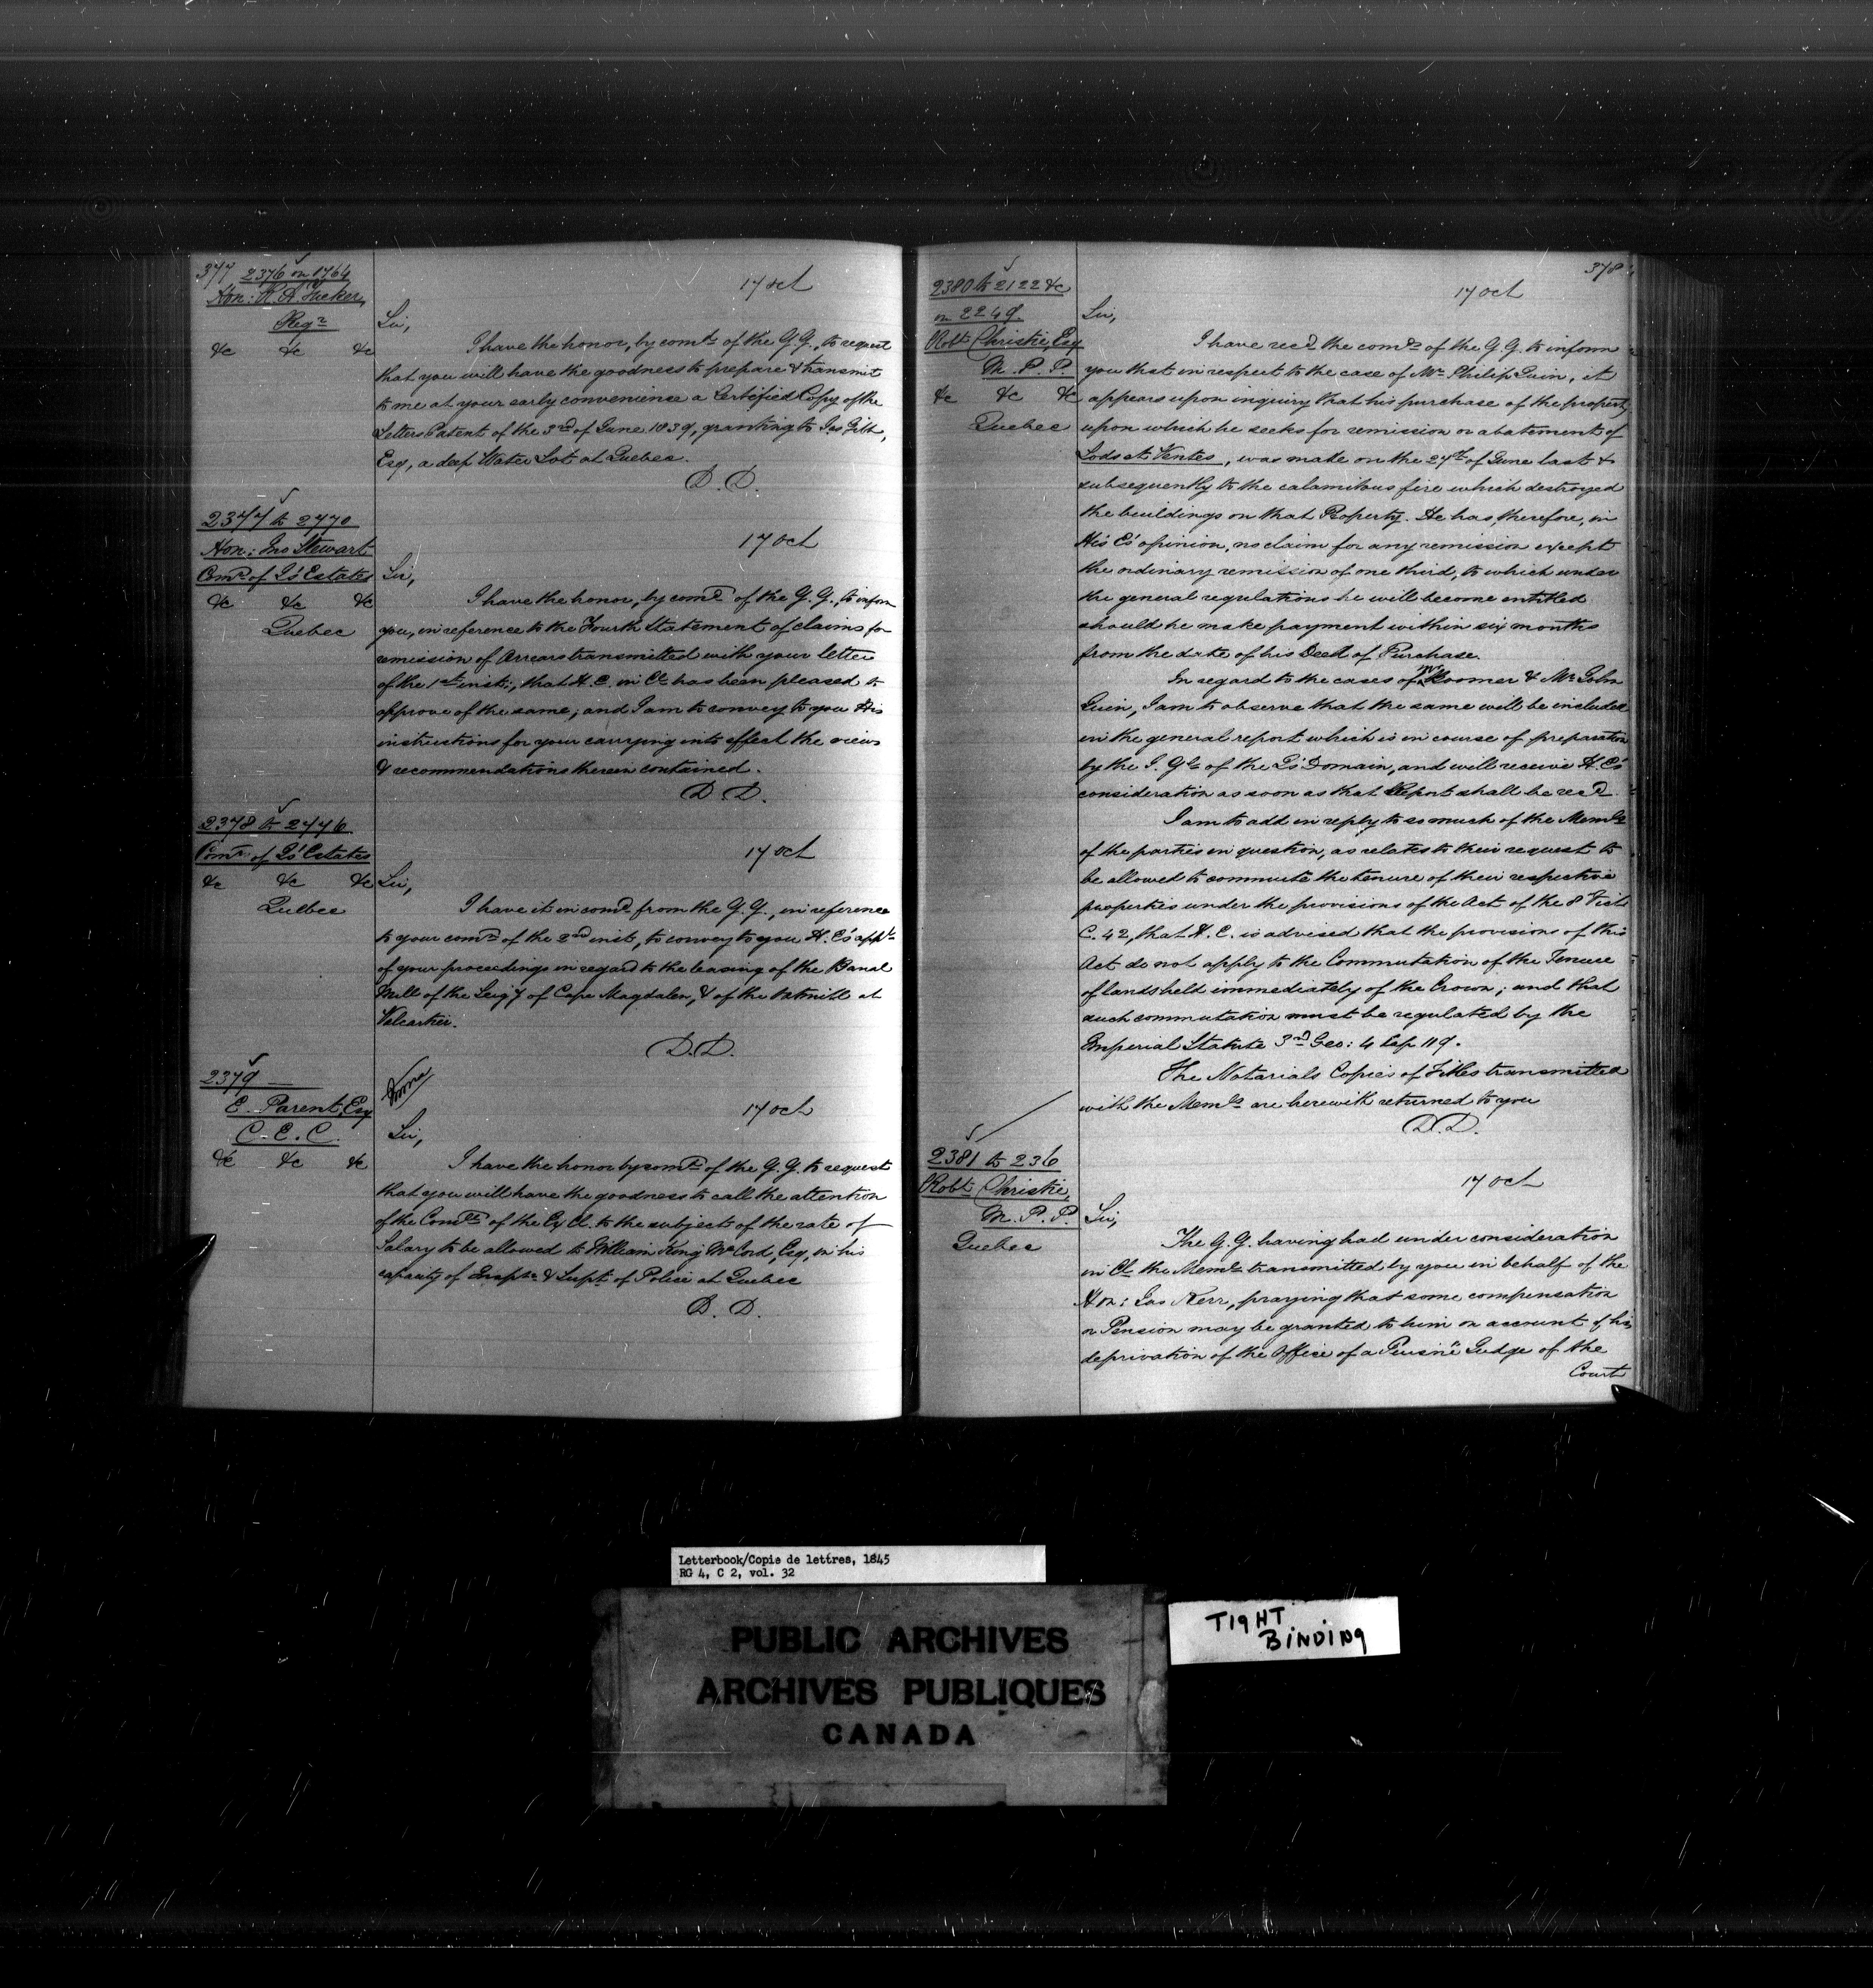 377 2376 on 1764
Hon: R. A. Tucker,
Regr
&c &c &c
17 Oct
Sir,
I have the honor, by comd of the G.G., to request
that you will have the goodness to prepare & transmit
to me at your early convenience a Certified Copy of the
Letters Patent of the 3rd of June 1839, granting to Jas Gibb,
Esq, a deep Water Lot at Quebec.
D. D.
2377 to 2470
Hon: Jno Stewart
Comr of Js' Estates
&c &c &c
Quebec
17 Oct
Sir,
I have the honor, by comd of the G.G., to inform
you, in reference to the Fourth Statement of claims for
remission of Arrears transmitted with your letter
of the 1st inst:, that H.E. in Cl has been pleased to
approve of the same; and I am to convey to you His
instructions for your carrying into effect the views
& recommendations therein contained.
D. D.
2378 to 2446
Comr of Js' Estates
&c &c &c
Quebec
17 Oct
Sir,
I have it in comd from the G.G., in reference
to your comn of the 2nd inst, to convey to you H. E's appl
of your proceedings in regard to the leasing of the Banal
Mill of the Seigy of Cape Magdalen, & of the Oatmill at
Valcartier.
D. D.
2379
E. Parent, Esq
C. E. C.
&c &c &c
17 Oct
Sir,
I have the honor by comd of the G.G. to request
that you will have the goodness to call the attention
of the Comee of the Ex Cl. to the subject of the rate of
Salary to be allowed to William King McCord, Esq, in his
capacity of Inspr & Supt of Police at Quebec
D. D.
378
2380 to 2122 &c
on 2249.
Robt Christie, Esq
M. P. P.
&c &c &c
Quebec
17 Oct
Sir,
I have recd the comds of the G.G. to inform
you that in respect to the case of Mr Philip Guin, it
appears upon inquiry that his purchase of the property
upon which he seeks for remission or abatement of
Lods et Ventes, was made on the 27th of June last &
subsequently to the calamitous fire which destroyed
the buildings on that Property. He has, therefore, in
His E's opinion, no claim for any remission except
the ordinary remission of one third, to which under
the general regulations he will become entitled
should he make payment within six months
from the date of his Deed of Purchase.
In regard to the cases of Mr Roomer & Mr John
Guin, I am to observe that the same will be included
in the general report which is in course of preparation
by the I. Gl of the Qs' Domain, and will receive H. E's
consideration as soon as that Report shall be recd
I am to add in reply to so much of the Memls
of the parties in question, as relates to their request to
be allowed to commute the tenure of their respective
properties under the provisions of the Act of the 8 Vict:
C. 42, that H. E. is advised that the provisions of this
Act do not apply to the Commutation of the Tenure
of lands held immediately of the Crown; and that
such commutation must be regulated by the
Imperial Statute 3rd Geo: 4 Cap 119.
The Notarials Copies of Titles transmitted
with the Memls are herewith returned to you
D. D.
2381 to 236
Robt Christie,
M. P. P.
Quebec
17 Oct
Sir,
The G.G. having had under consideration
in Cl the Meml transmitted by you in behalf of the
Hon: Jas Kerr, praying that some compensation
or Pension may be granted to him on account of his
deprivation of the Office of a Puisné Judge of the
Court
Letterbook/Copie de lettres, 1845
RG 4, C 2, vol. 32
PUBLIC ARCHIVES
ARCHIVES PUBLIQUES
CANADA
TIGHT
BINDING